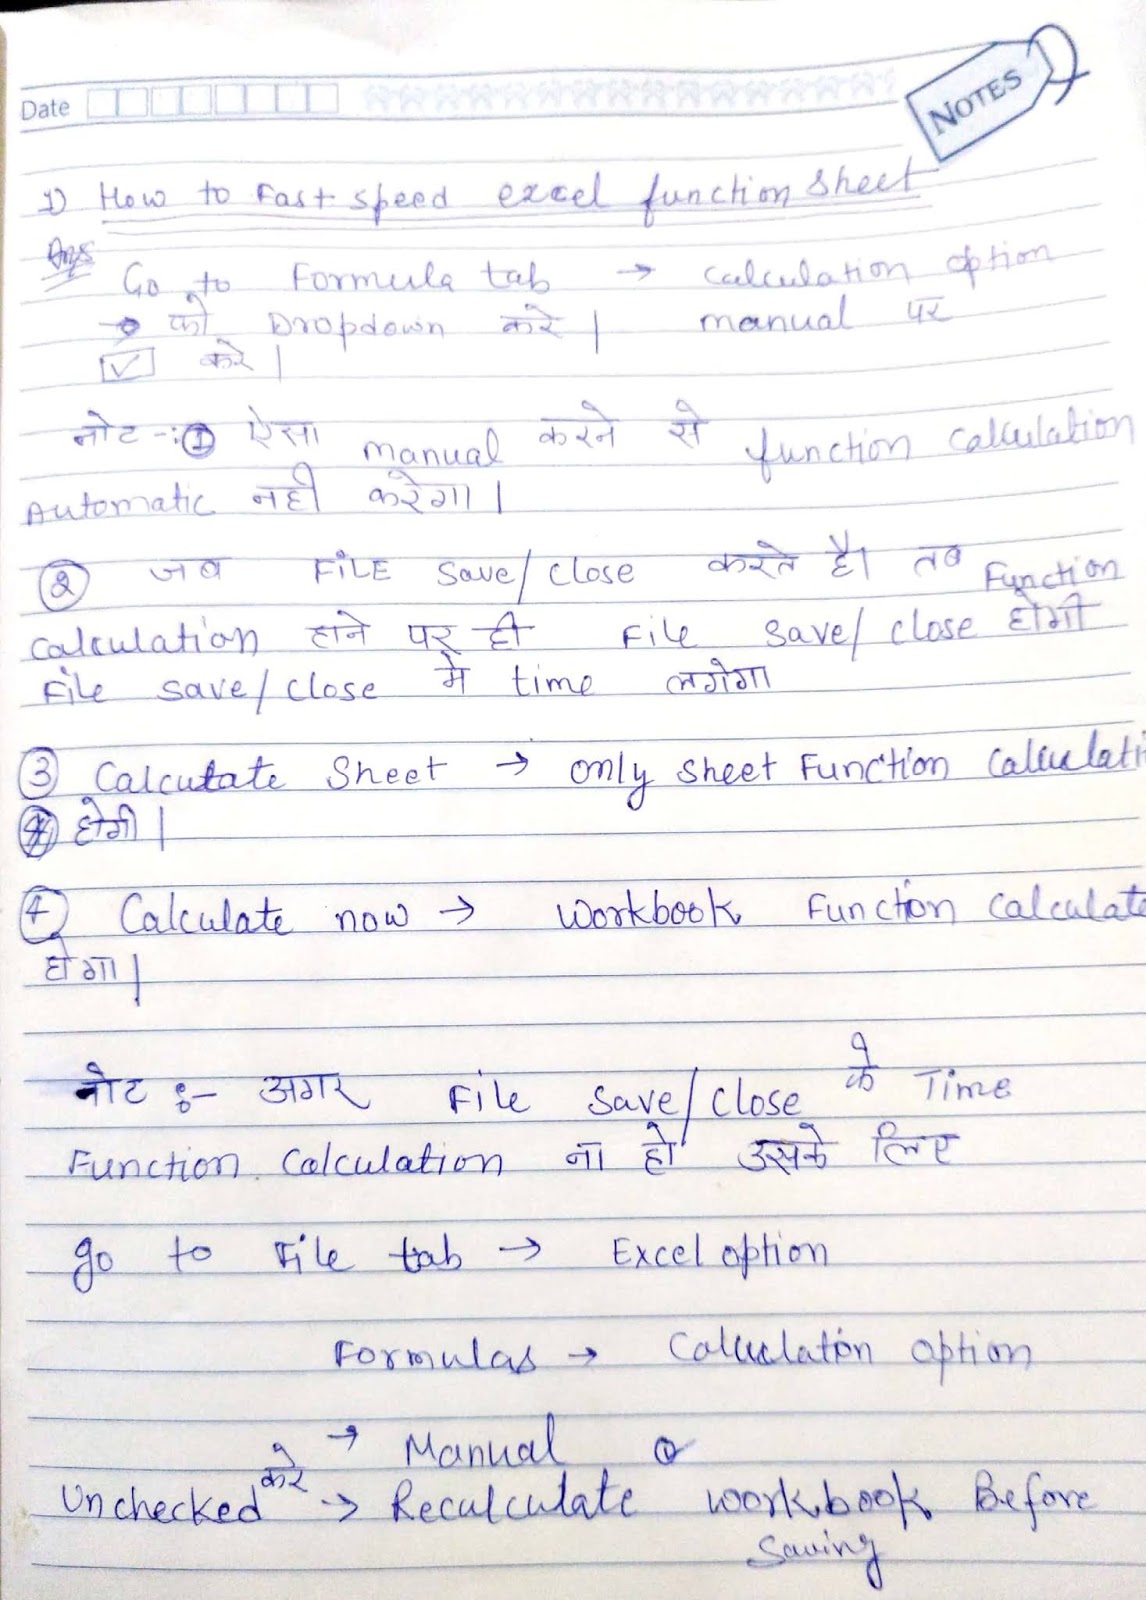 Date
NOTES
1) How to Fast speed excel function sheet
Ans
Go to Formula tab → calculation option
→ को Dropdown करे | manual पर
☑ करे |
नोट -: ① ऐसा manual करने से function calculation
Automatic नही करेगा |
② जब FILE save/close करते है। तब Function
calculation होने पर ही File save/close होगी
File save/close मे time लगेगा
③ Calculate Sheet → only sheet Function calculati
होगी |
④ Calculate now → workbook Function calculate
होगा |
नोट :- अगर File save/close के Time
Function calculation ना हो उसके लिए
go to File tab → Excel option
Formulas → Calculation option
→ Manual
Unchecked करे → Recalculate workbook Before
saving